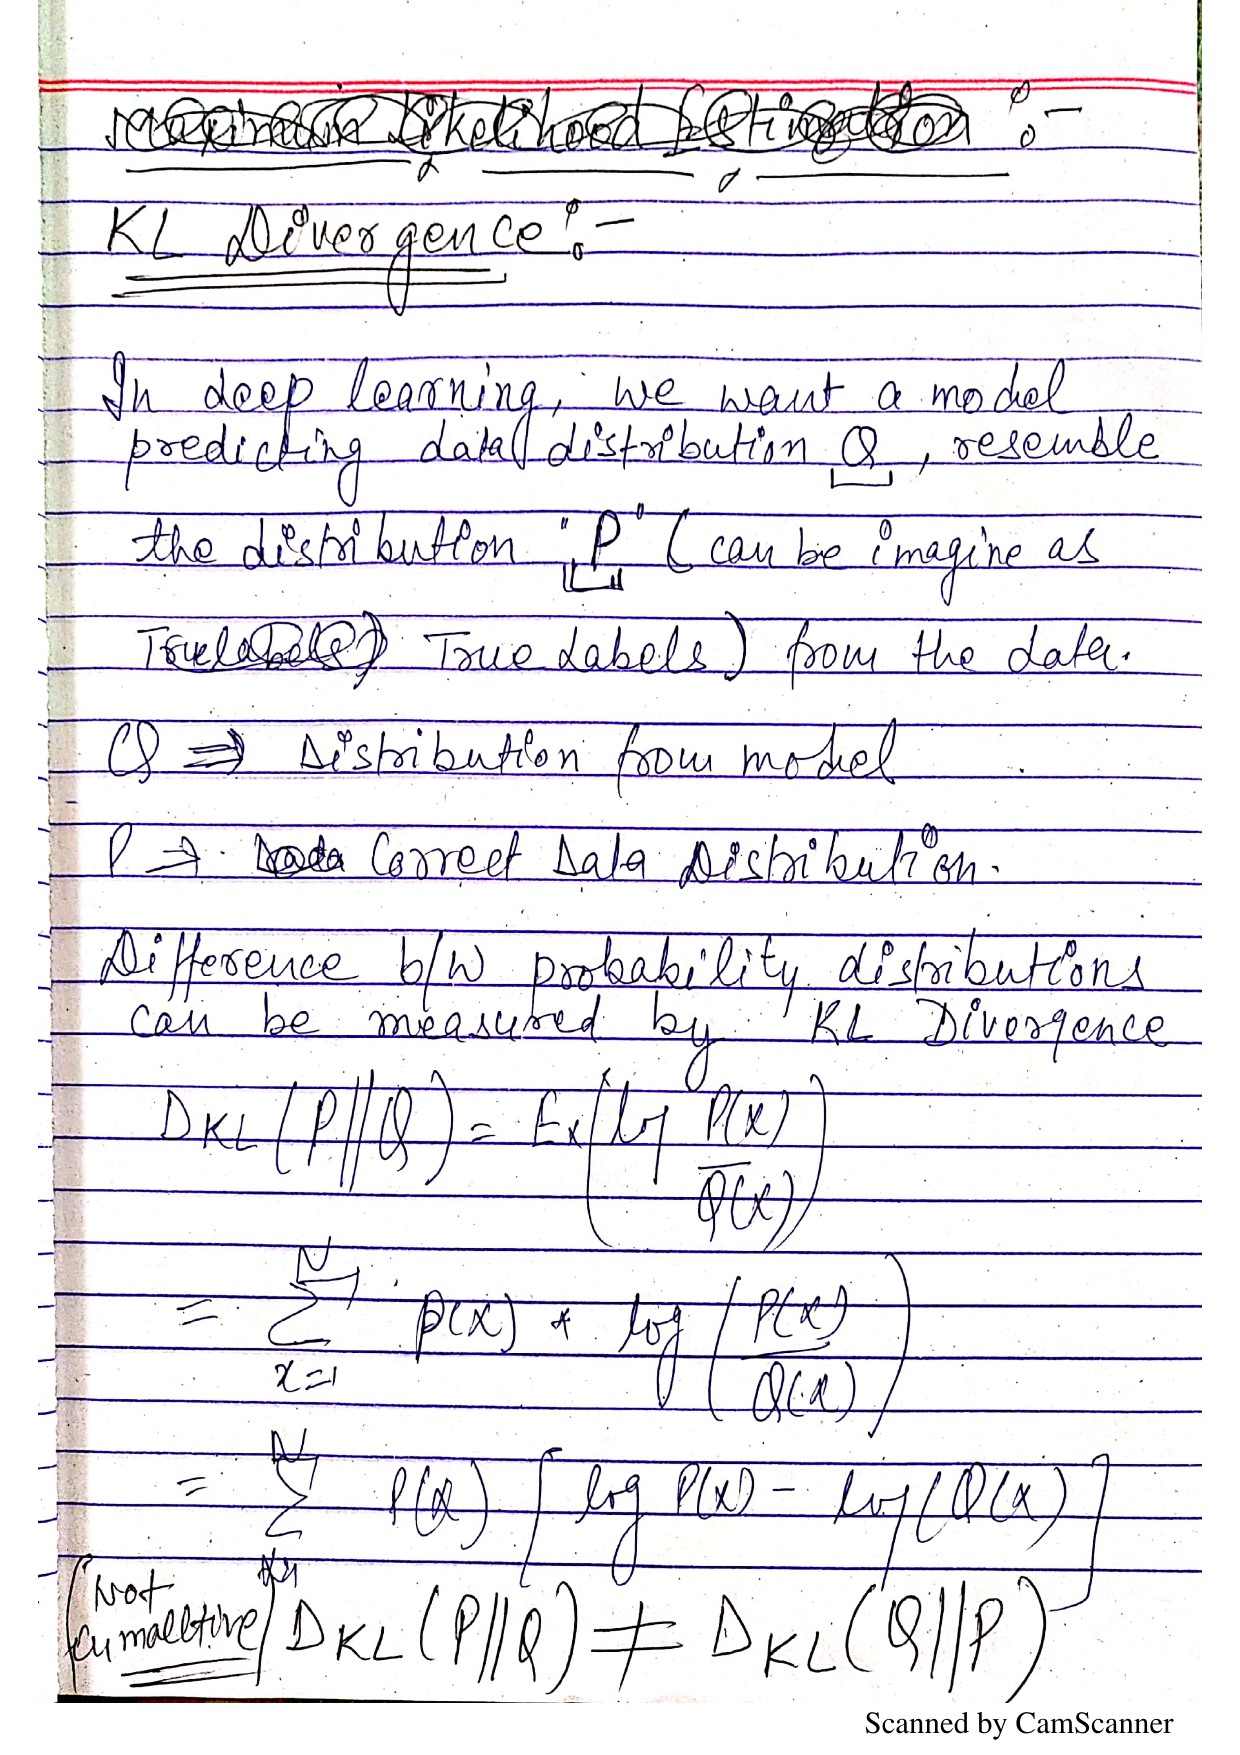 Maximum Likelihood Estimation :-
KL Divergence :-
In deep learning, we want a model
predicting data distribution Q, resemble
the distribution "P" (can be imagine as
True Labels) True Labels) from the data.
Q ⇒ Distribution from model
P ⇒ Correct Data Distribution.
Difference b/w probability distributions
can be measured by KL Divergence
DKL (P||Q) = Ex (log P(x) / Q(x))
= N Σ x=1 p(x) * log (P(x) / Q(x))
= N Σ x=1 P(x) [log P(x) - log (Q(x)]
(Not
cumulative) DKL (P||Q) ≠ DKL (Q||P)
Scanned by CamScanner